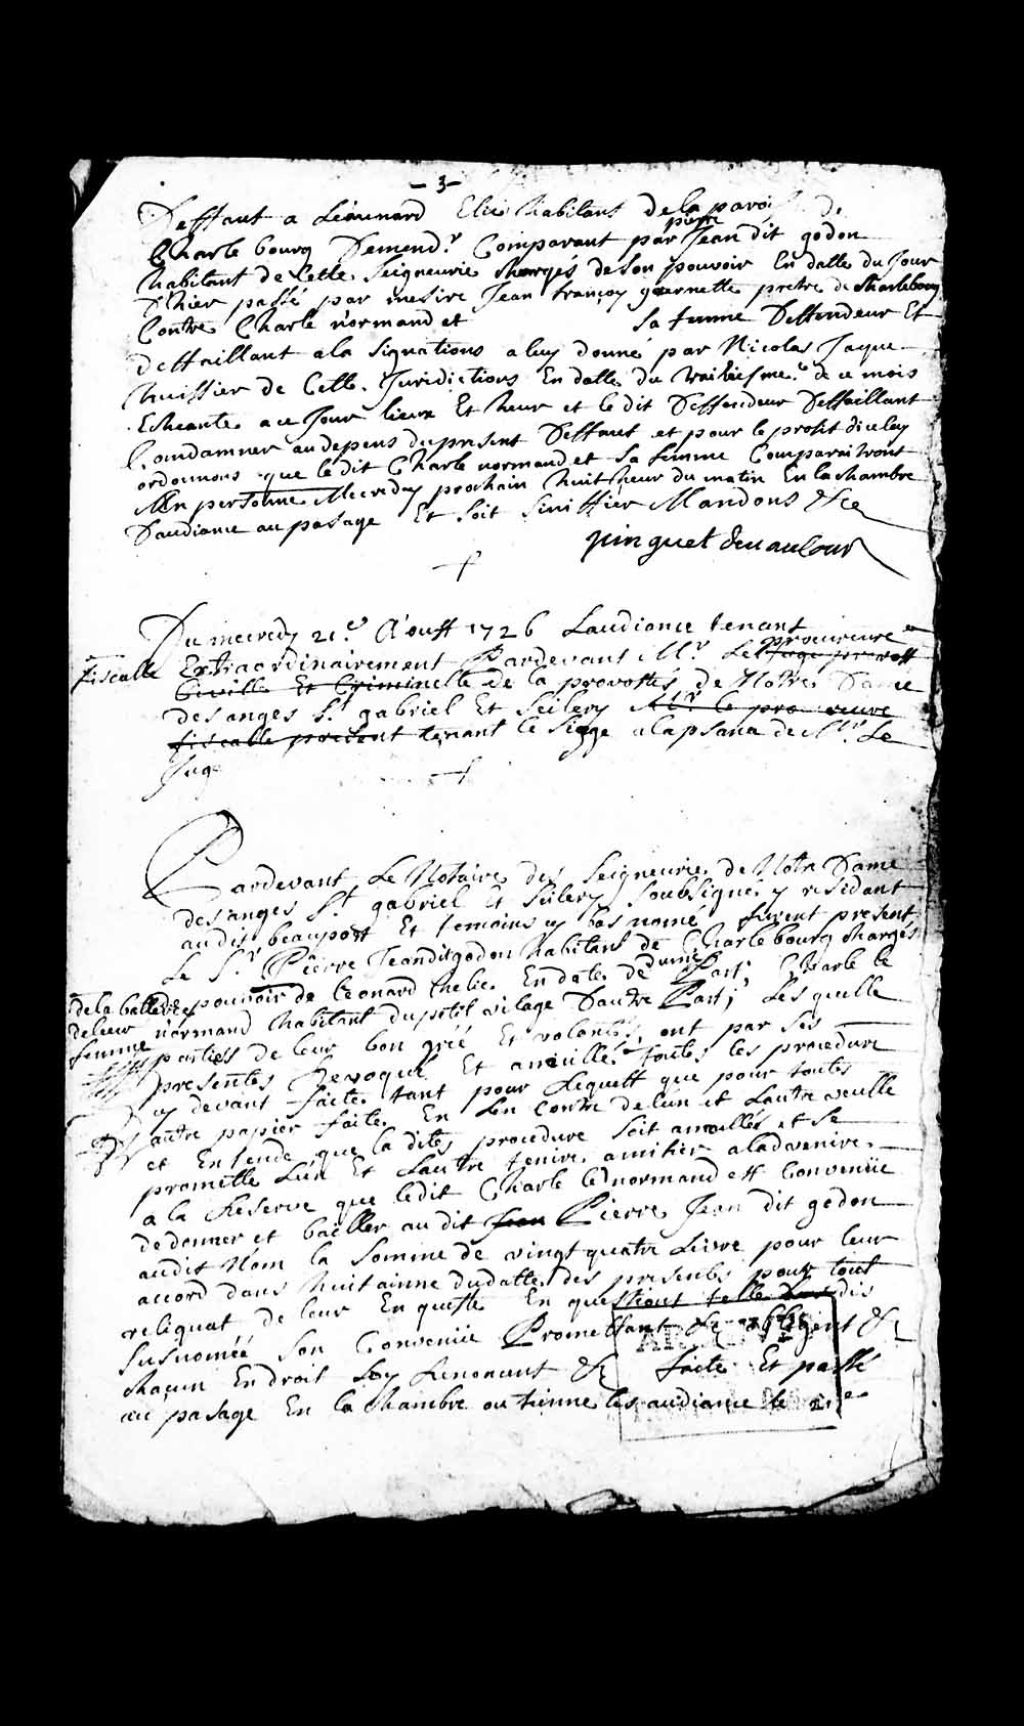 - 3 -
Deffaut a Léaunard Elie habitant de la paroi de
pierre
Charle bourg Demend.r Comparant par Jean dit godon
habitant de Cette Seigneurie chargés de son pouvoir En datte du Jour
D'hier passé par mesire Jean françoy pretre de Charlebourg
Contre Charle normand et sa femme Deffendeur Et
deffaillant a la signations a luy donné par Nicolas Jaque
huissier de Cette Juridictions En datte du de ce mois
Echeante a ce Jour lieux Et heur et le dit Deffendeur Deffaillant
Condamner au depens du present Deffaut et pour le profit diceluy
ordonnons que le dit Charle normand et sa femme Comparaitront
En personne Mecredy prochain huit heur du matin En la chambre
Daudiance au pasage Et soit Sinifier Mandons &ce
pinguet devaucour
Du mecredy 21.e Aoust 1726 Laudiance tenant
procureure
fiscalle Extraordinairement Pardevant M.r Le Juge prevost
Civille Et Criminelle de la provostés de Notre Dame
des anges S.t gabriel Et Seilery M.r le procureure
fiscalle presant tenant le Siege a lapsance de M.r Le
Juge
Pardevant Le Notaire des Seigneurie de Notre Dame
des anges S.t gabriel Et Seilery Soubsigne y residant
audit beauport Et temoins cy bas nomé furent present
Le S.r Pierre Jeanditgodon habitant de Charlebourg chargés
pouvoir de Leonard Elie En date de dune Part; Charle le
normand habitant du petit vilage Dautre Part; Lesquelle
femme
parties de leur bon gré Et volontés, ont par ses
presentes Revoque Et anulle toutes les procedure
cy devant faite tant pour Lequett que pour toutes
autre papier faite En Contre de lun et Lautre veulle
et Entende que la dites procedure soit anullés et se
promette Lun Et Lautre tenire amitier a ladvenire
a la Reserve que ledit Charle le normand est Convenüe
de donner et bailler au dit Jean Pierre Jean dit godon
audit Nom la Somme de vingt quatre Livre pour leur
accord dans huitainne du datte des presentes pour tout
reliquat de leur En queste En questions telle dis
susnomée son Convenüe Promettant &c obligent &c
chacun En droit soy Renonçant &c faite Et passé
au pasage En la Chambre ou tienne les audiance le 21.e